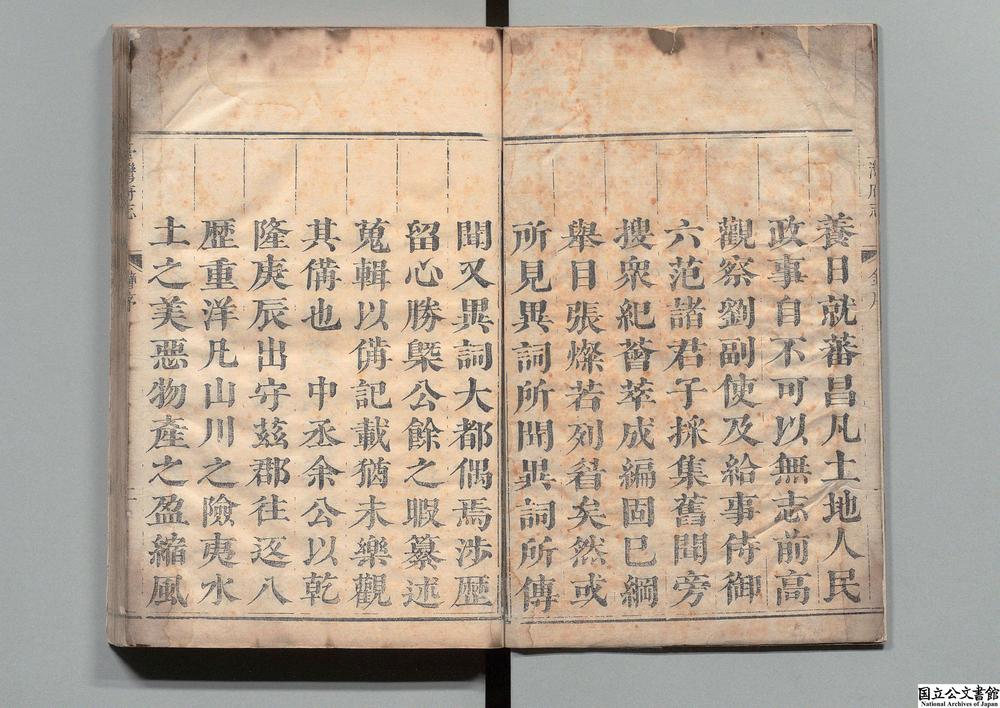 養日就蕃昌凡土地人民
政事自不可以無志前高
觀察劉副使及給事侍御
六范諸君子採集舊聞旁
搜衆紀薈萃成編固已綱
舉目張燦若列眉矣然或
所見異詞所聞異詞所傳
聞又異詞大都偶焉涉歷
留心勝槩公餘之暇纂述
蒐輯以備記載猶未樂觀
其備也　中丞余公以乾
隆庚辰出守茲郡往返八
歷重洋凡山川之險夷水
土之美惡物產之盈縮風
灣府志
臺灣府志
国立公文書館
National Archives of Japan